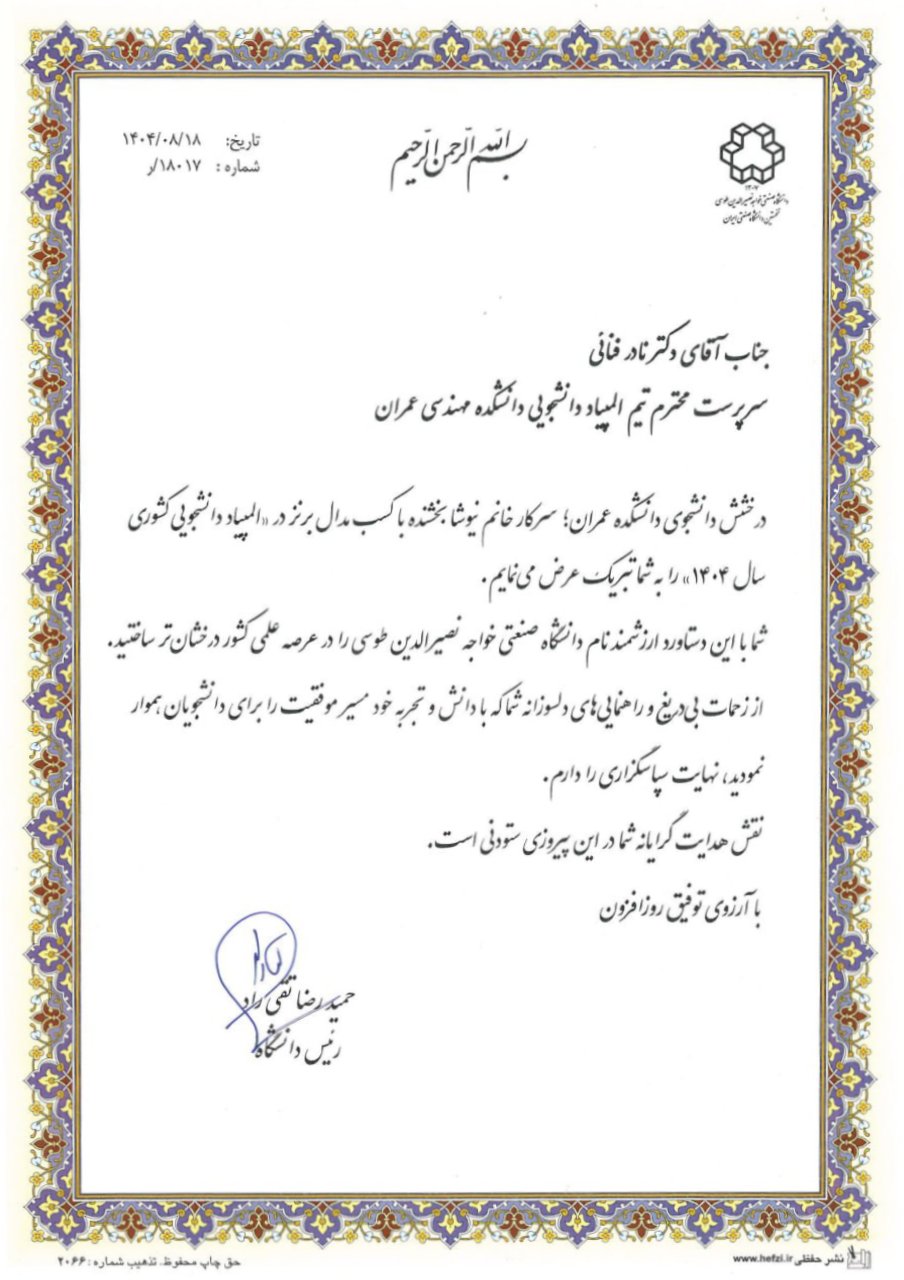 ۱۳۰۷
دانشگاه صنعتی خواجه نصیرالدین طوسی
نخستین دانشگاه صنعتی ایران
بسم الله الرحمن الرحیم
تاریخ: ۱۴۰۴/۰۸/۱۸
شماره : ۱۸۰۱۷/ر
جناب آقای دکتر نادر فنائی
سرپرست محترم تیم المپیاد دانشجویی دانشکده مهندسی عمران
درخشش دانشجوی دانشکده عمران؛ سرکار خانم نیوشا بخشنده با کسب مدال برنز در «المپیاد دانشجویی کشوری
سال ۱۴۰۴» را به شما تبریک عرض می‌نمایم.
شما با این دستاورد ارزشمند نام دانشگاه صنعتی خواجه نصیرالدین طوسی را در عرصه علمی کشور درخشان‌تر ساختید.
از زحمات بی‌دریغ و راهنمایی‌های دلسوزانه شما که با دانش و تجربه خود مسیر موفقیت را برای دانشجویان هموار
نمودید، نهایت سپاسگزاری را دارم.
نقش هدایت گرایانه شما در این پیروزی ستودنی است.
با آرزوی توفیق روزافزون
حمید رضا تقی راد
رئیس دانشگاه
نشر حفظی www.hefzi.ir
حق چاپ محفوظ. تذهیب شماره : ۲۰۶۶